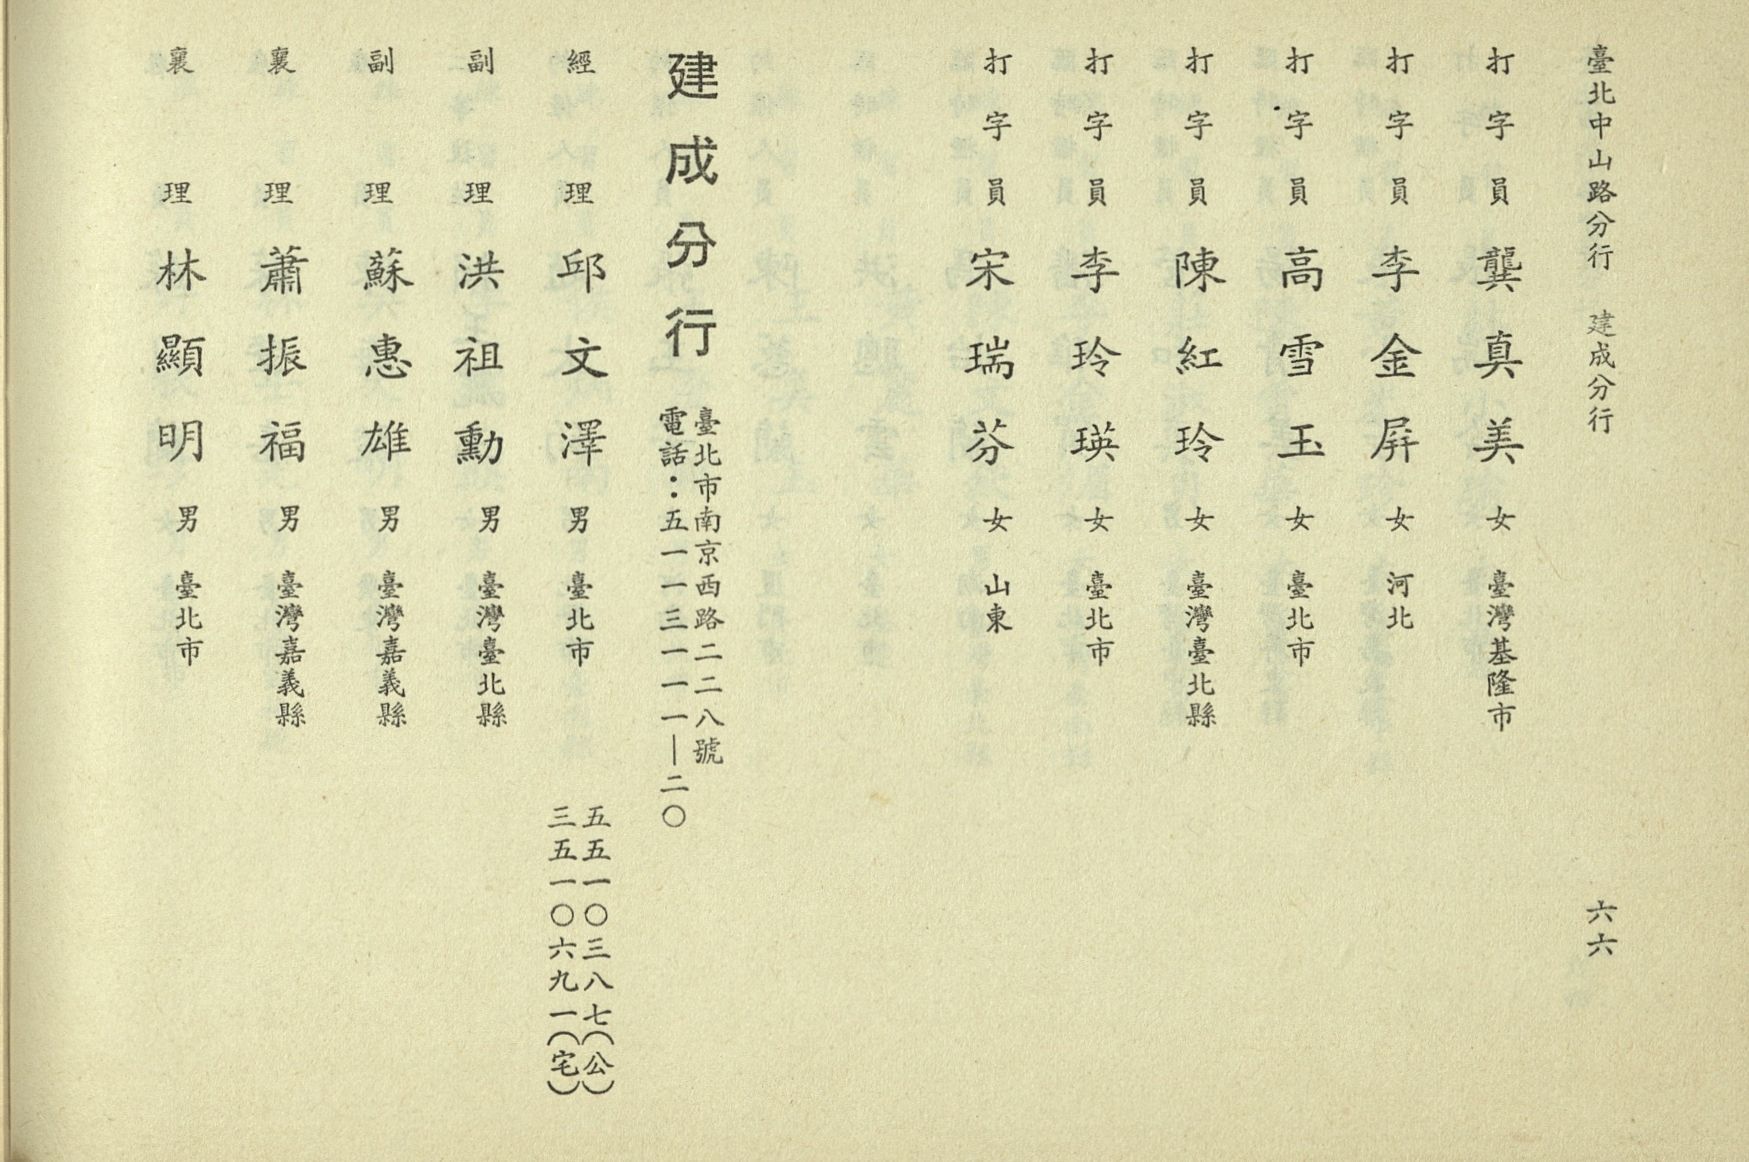 臺北中山路分行　建成分行　六六
打字員　龔真美　女　臺灣基隆市
打字員　李金屏　女　河北
打字員　高雪玉　女　臺北市
打字員　陳紅玲　女　臺灣臺北縣
打字員　李玲瑛　女　臺北市
打字員　宋瑞芬　女　山東
建成分行
臺北市南京西路二二八號
電話：五一一三一一一—二〇
經理　邱文澤　男　臺北市
五五一〇三八七（公）
三五一〇六九一（宅）
副理　洪祖勳　男　臺灣臺北縣
副理　蘇惠雄　男　臺灣嘉義縣
襄理　蕭振福　男　臺灣嘉義縣
襄理　林顯明　男　臺北市